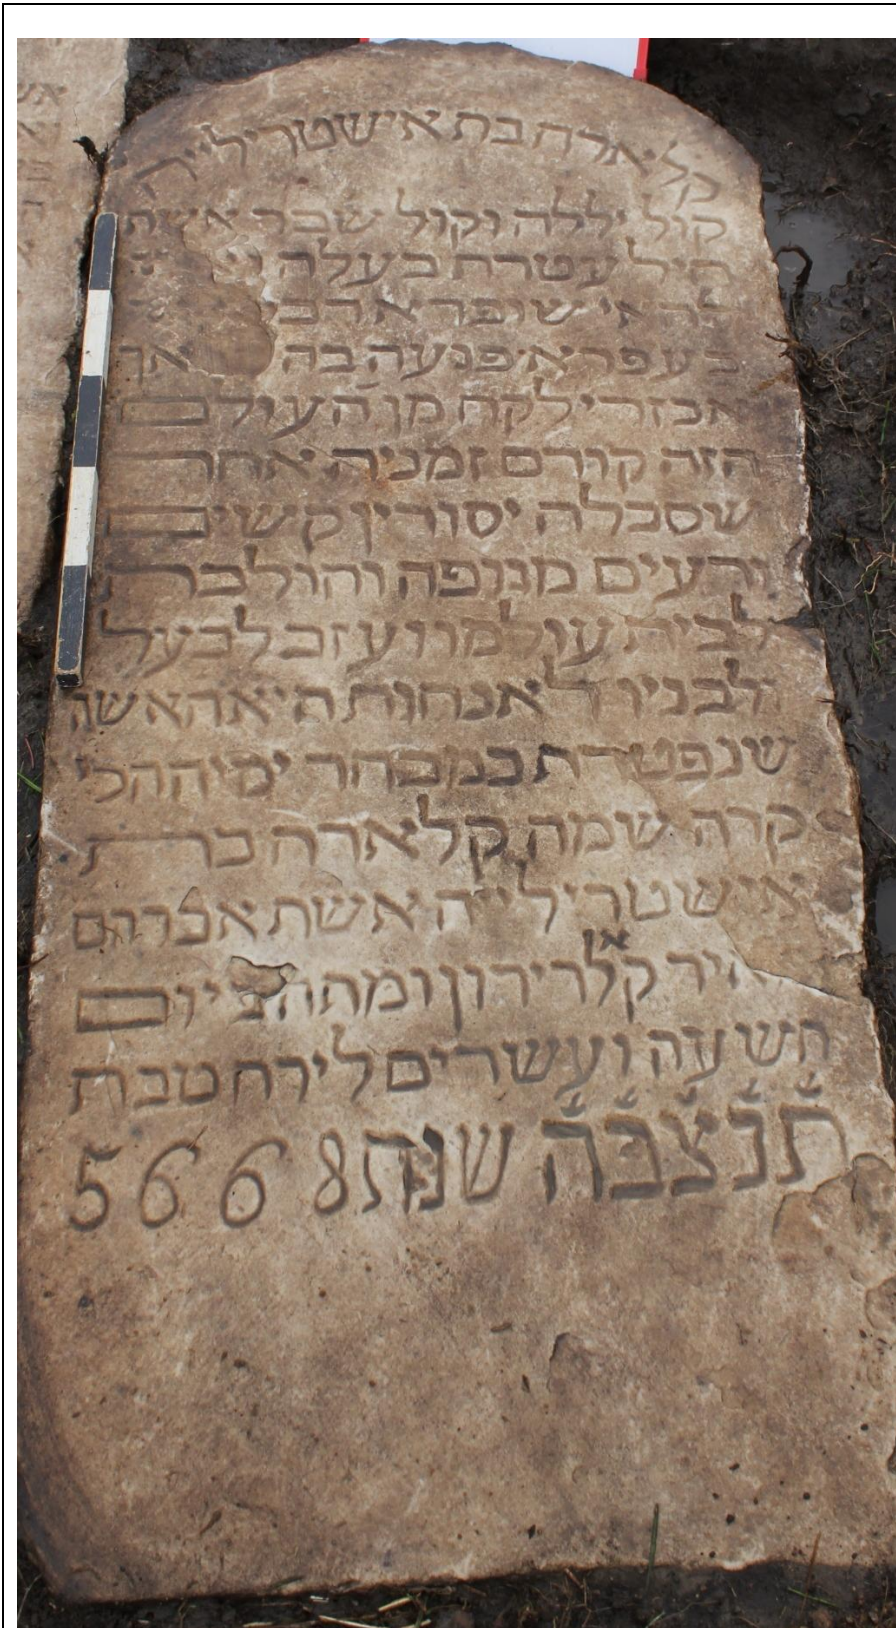 קלארה בת אישטריליה
קול יללה וקול שבר אשת
חיל עטרת בעלה
שופרא דבי
בעפרא פנעה בה אך
אכזרי לקח מן העולם
הזה קודם זמניה אחר
שסבלה יסורין קשים
ורעים מגופה והולכת
לבית עולמו ועזב לבעל
ולבניו לאנחות היא האשה
שנפטרת במבחר ימיה הלי
קרה שמה קלארה ברת
אישטרילייה אשת אברהם
קלרירון ומתה ביום
תשעה ועשרים לירח טבת
תנצבה שנת 5668